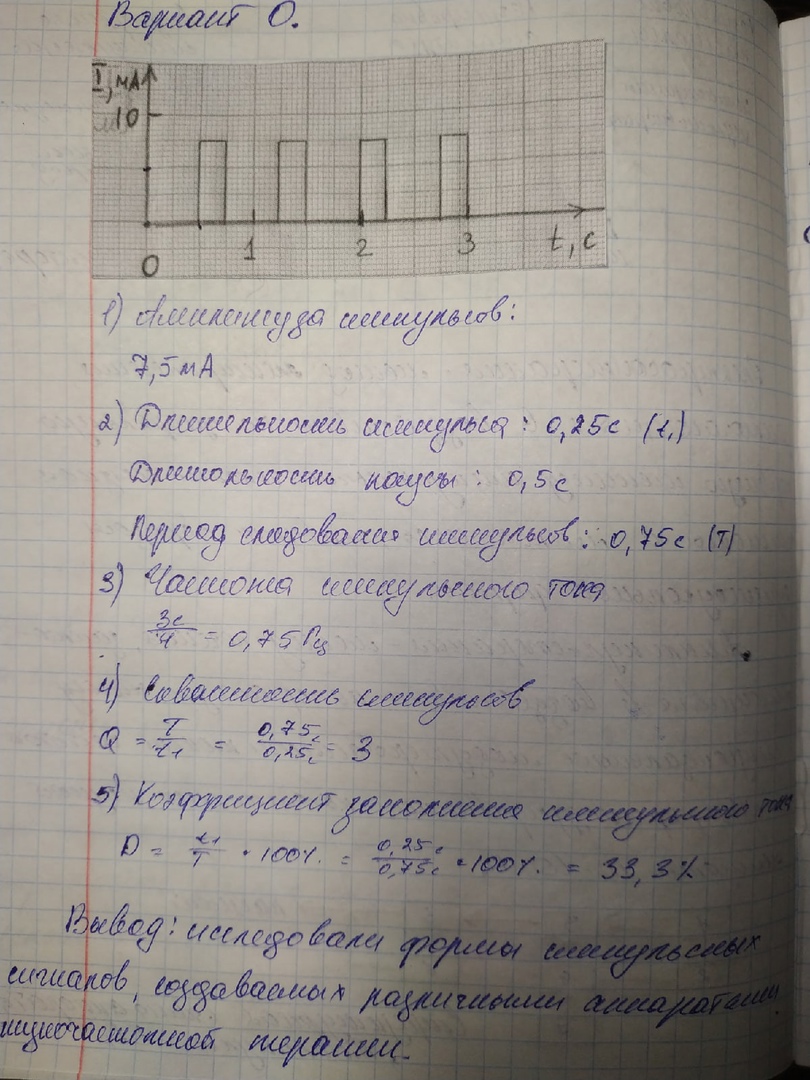 Вариант 0.
I, мА
10
0 1 2 3 t, с
1) Амплитуда импульсов:
7,5 мА
2) Длительность импульса : 0,25с (t₁)
Длительность паузы : 0,5с
Период следования импульсов : 0,75с (T)
3) Частота импульсного тока
3с/4 = 0,75 Гц
4) Скважность импульсов
Q = T/t₁ = 0,75с/0,25с = 3
5) Коэффициент заполнения импульсного тока
D = t₁/T • 100% = 0,25с/0,75с • 100% = 33,3%
Вывод: исследовали формы импульсных
сигналов, создаваемых различными аппаратами
низкочастотной терапии.